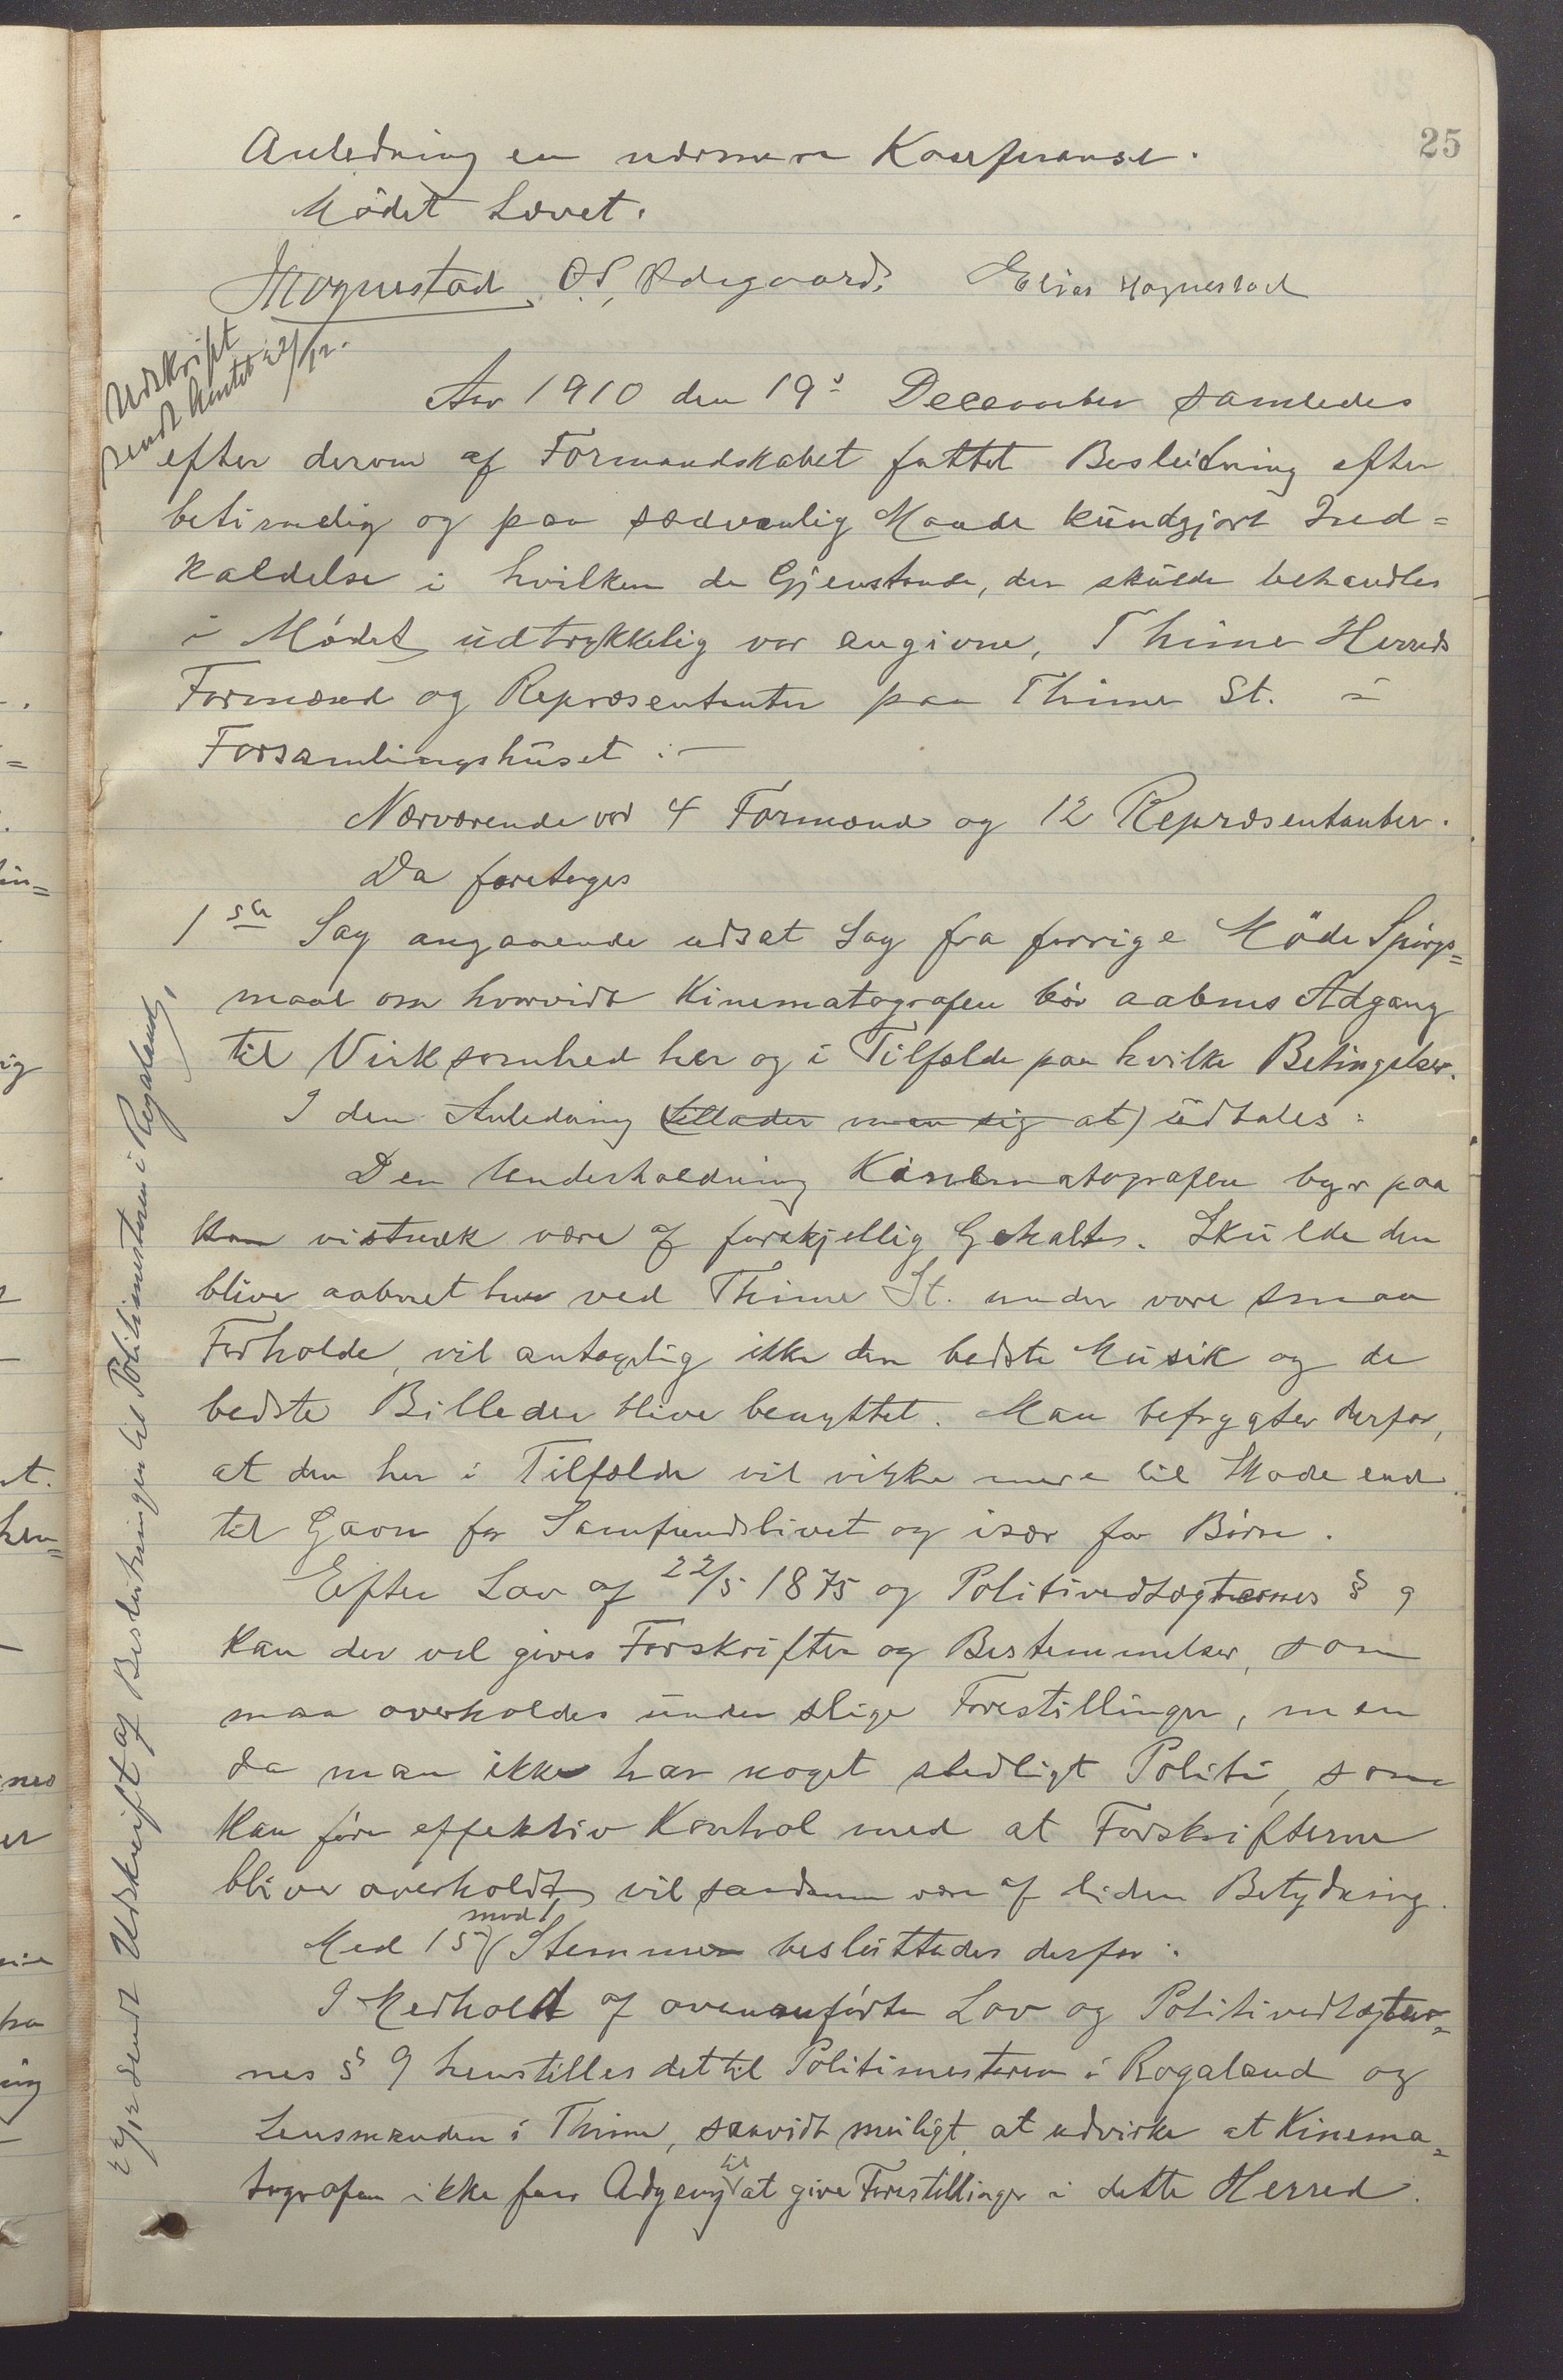 25
Anledning en nærmere Konferanse.
Mödet hævet.
Mognestad O. S. Ødegaard. Elias Hognestad
Udskrift
sendt Amtet 22/12.
Aar 1910 den 19de December samledes
efter derom af Formandskabet fattet Beslutning efter
betimelig og paa sædvanlig Maade kundgjort Ind=
kaldelse i hvilken de Gjenstande, der skulde behandles
i Mödet udtrykkelig var angivne, Thime Herreds
Formænd og Repræsentanter paa Thime St. i
Forsamlingshuset :-
Nærværende var 4 Formænd og 12 Repræsentanter.
Da foretoges
1ste Sag angaaende udsat Sag fra forrige Möde Spörgs=
maal om hvorvidt Kinematografen bör aabnes Adgang
til Virksomhed her og i Tilfælde paa hvilke Betingelser.
I den Anledning (tillader man sig at) udtales:
Den Underholdning Kinematografen byr paa
kan vistnok være af forskjellig Gehalt. Skulde den
blive aabnet her ved Thime St. under vore smaa
Forholde, vil antagelig ikke den bedste Musik og de
bedste Billeder blive benyttet. Man befrygter derfor,
at den her i Tilfælde vil virke mere til Skade end
til Gavn for Samfundslivet og især for Börn.
Efter Lov af 22/5 1875 og Politivedtægternes § 9
kan der vel gives Forskrifter og Bestemmelser, som
maa overholdes under slige Forestillinger, men
da man ikke har noget stedligt Politi, som
kan före effektiv Kontrol med at Forskrifterne
bliver overholdt, vil saadanne være af liden Betydning.
Med 15 mod 1 Stemmer besluttedes derfor:
I Medhold af ovenanförte Lov og Politivedtægter=
nes § 9 henstilles det til Politimesteren i Rogaland og
Lensmanden i Thime, saavidt muligt, at udvirke at Kinema=
tografen ikke faar Adgang til at give Forestillinger i dette Herred.
Udskrift af Beslutningen til Politimesteren i Rogaland,